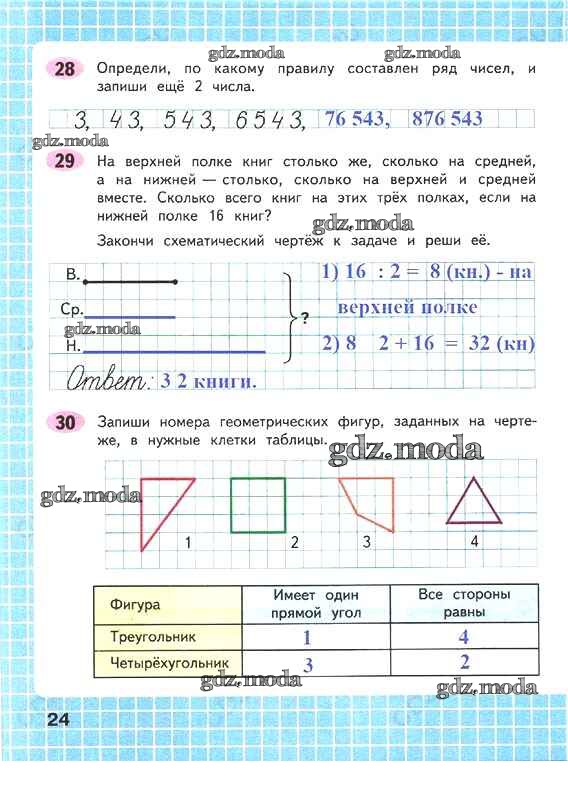 gdz.moda gdz.moda
28 Определи, по какому правилу составлен ряд чисел, и
запиши ещё 2 числа.
3, 43, 543, 6543, 76 543, 876 543
gdz.moda
29 На верхней полке книг столько же, сколько на средней,
а на нижней — столько, сколько на верхней и средней
вместе. Сколько всего книг на этих трёх полках, если на
нижней полке 16 книг?
gdz.moda
Закончи схематический чертёж к задаче и реши её.
В. 1) 16 : 2 = 8 (кн.) - на
Ср. ? верхней полке
gdz.moda
Н. 2) 8 2 + 16 = 32 (кн)
Ответ: 3 2 книги.
30 Запиши номера геометрических фигур, заданных на черте-
же, в нужные клетки таблицы.
gdz.moda
gdz.moda
1 2 3 4
Фигура Имеет один прямой угол Все стороны равны
Треугольник 1 4
Четырёхугольник 3 2
gdz.moda gdz.moda
24